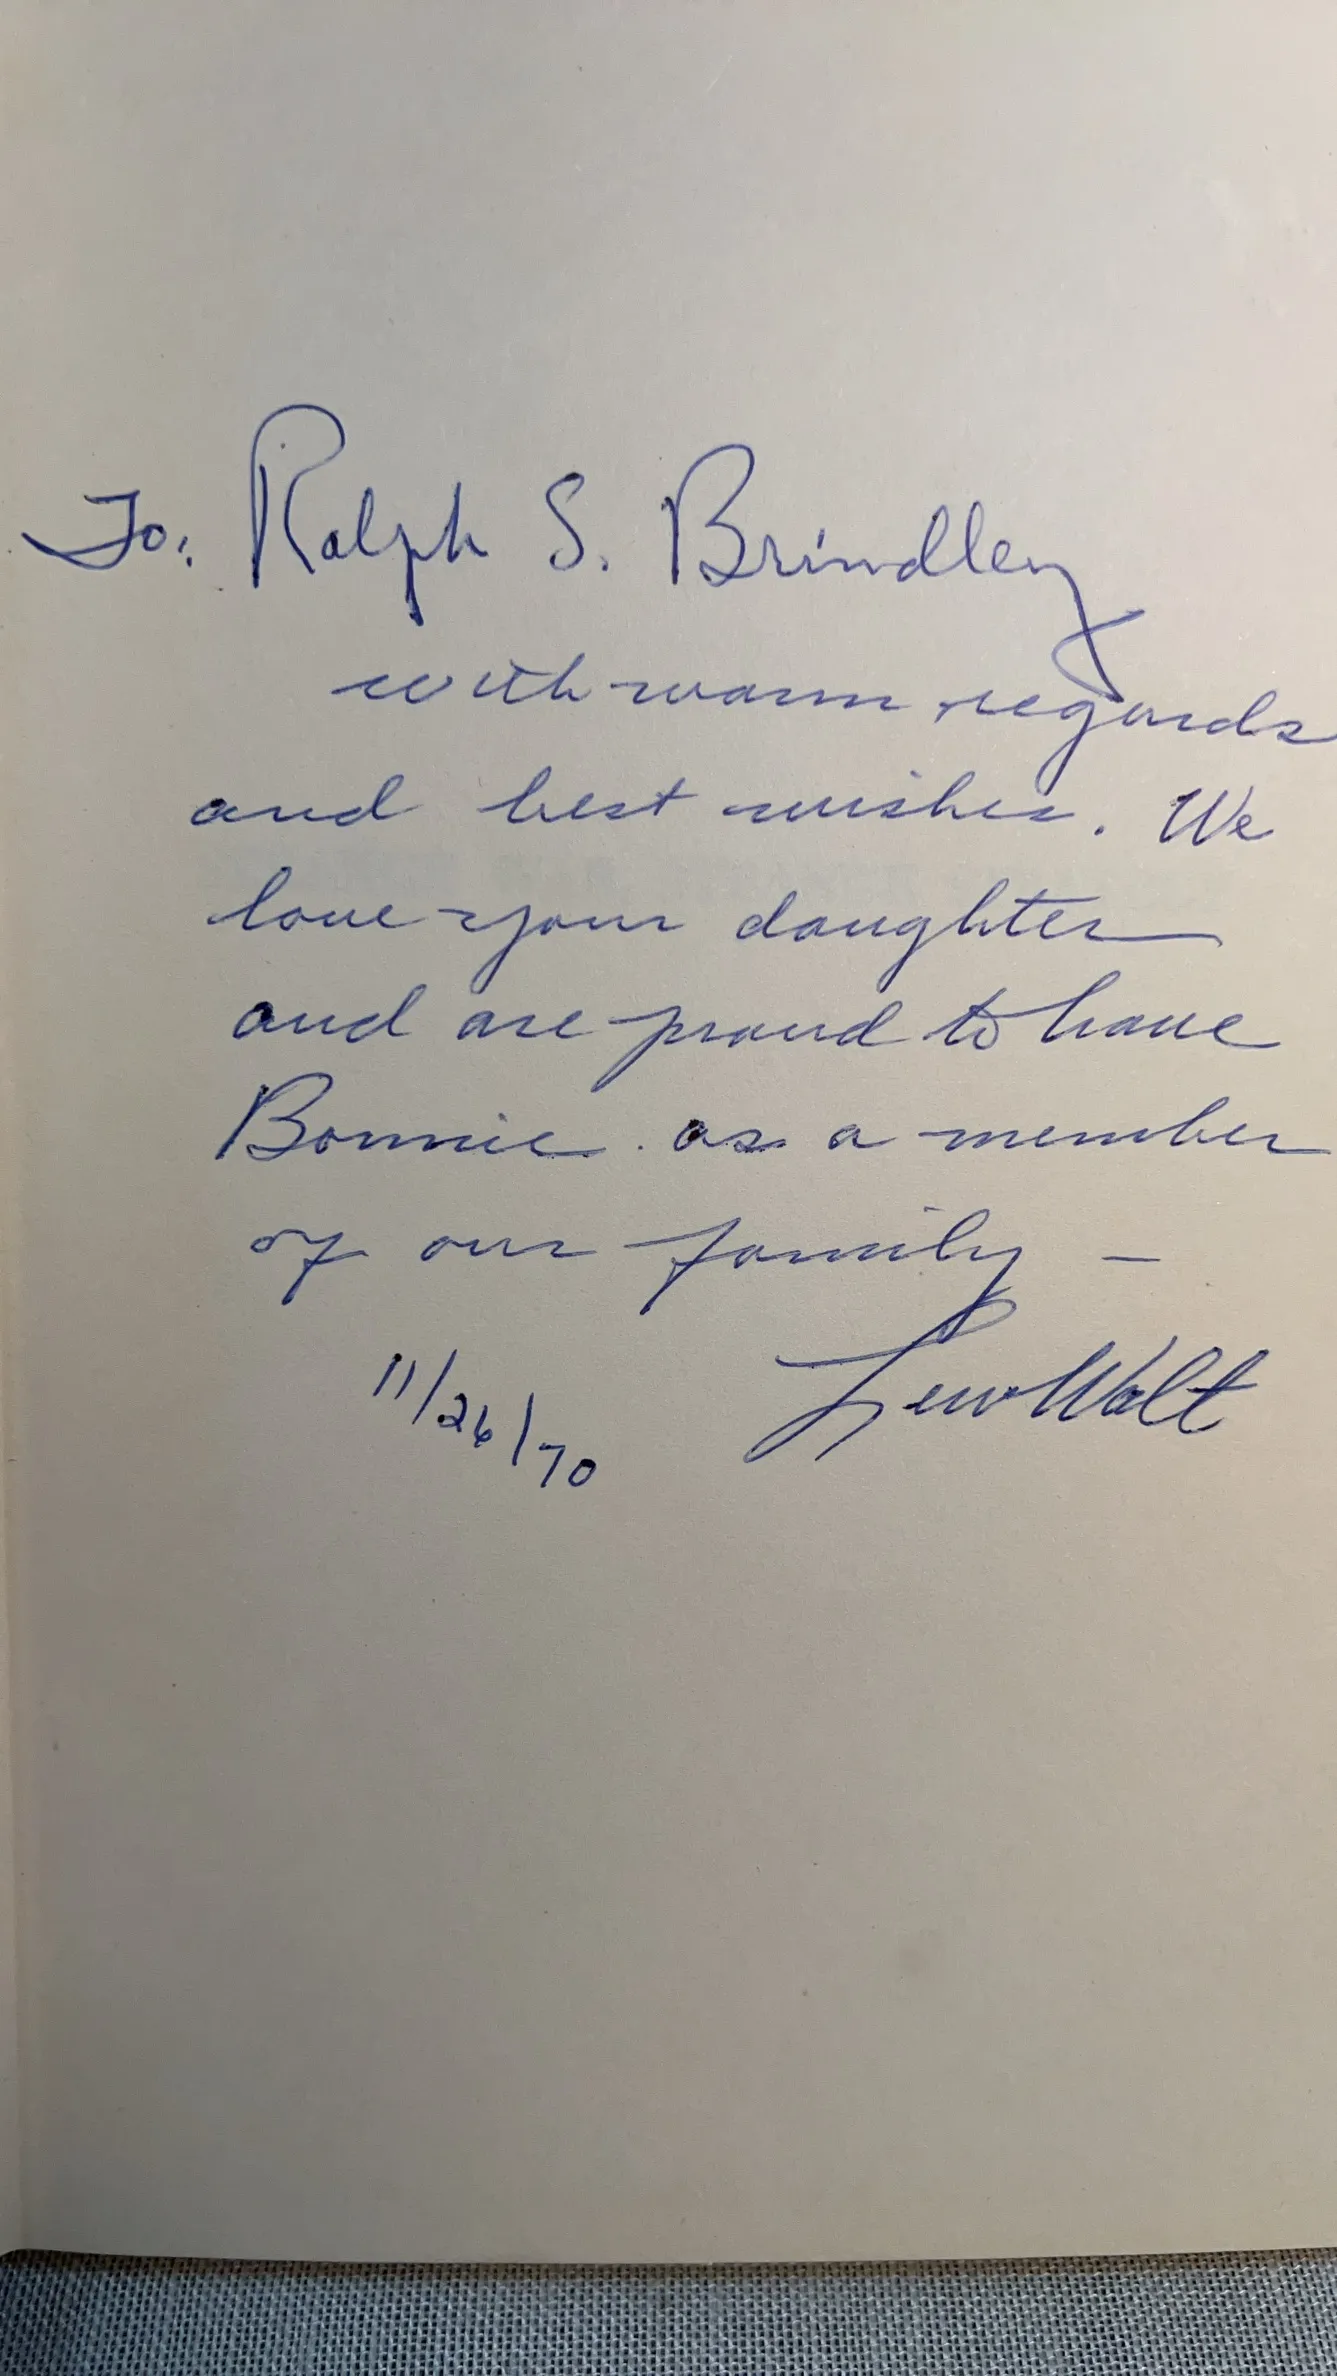 To: Ralph S. Brindley
with warm regards
and best wishes. We
love your daughter
and are proud to have
Bonnie as a member
of our family –
Lew Walt
11/26/70